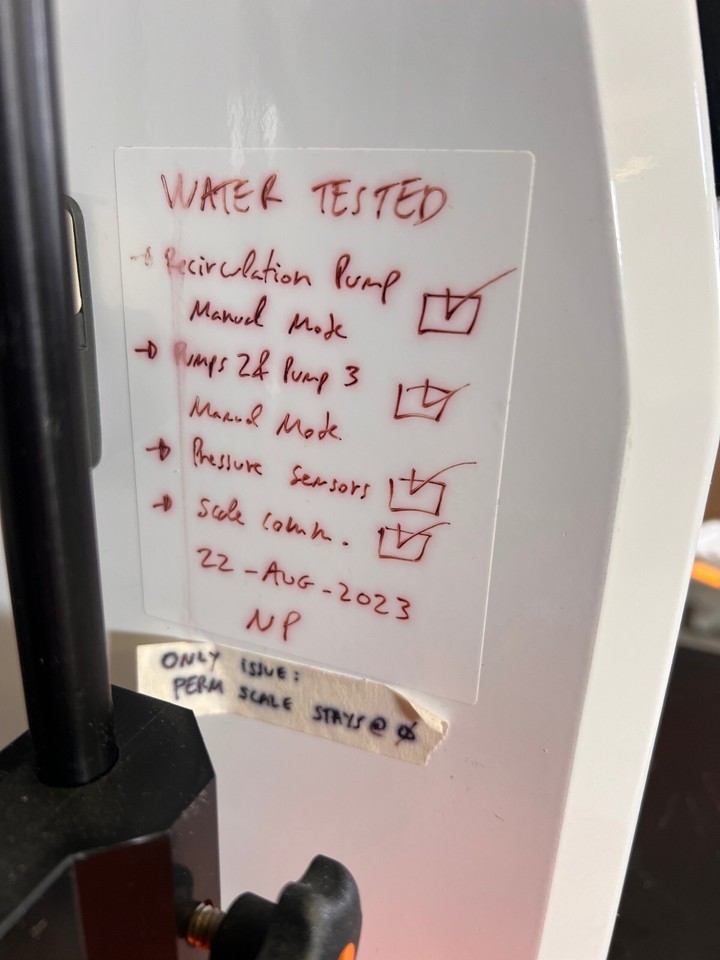 WATER TESTED
→ Recirculation Pump
Manual Mode
→ Pumps 2 & Pump 3
Manual Mode
→ Pressure Sensors
→ Scale comm.
22-AUG-2023
NP
ONLY ISSUE:
PERM SCALE STAYS @ Ø